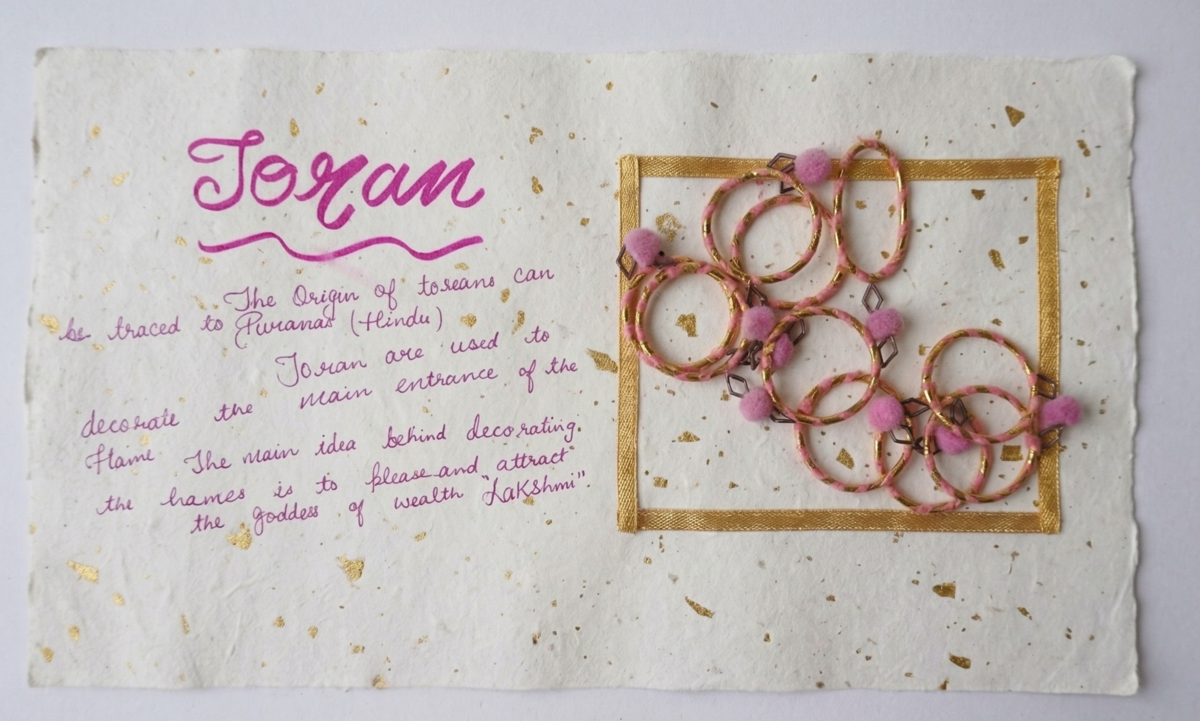 Toran
The Origin of torans can
be traced to Puranas (Hindu)
Toran are used to
decorate the main entrance of the
Hame. The main idea behind decorating.
the hames is to please and attract
the goddess of wealth "LaKshmi".